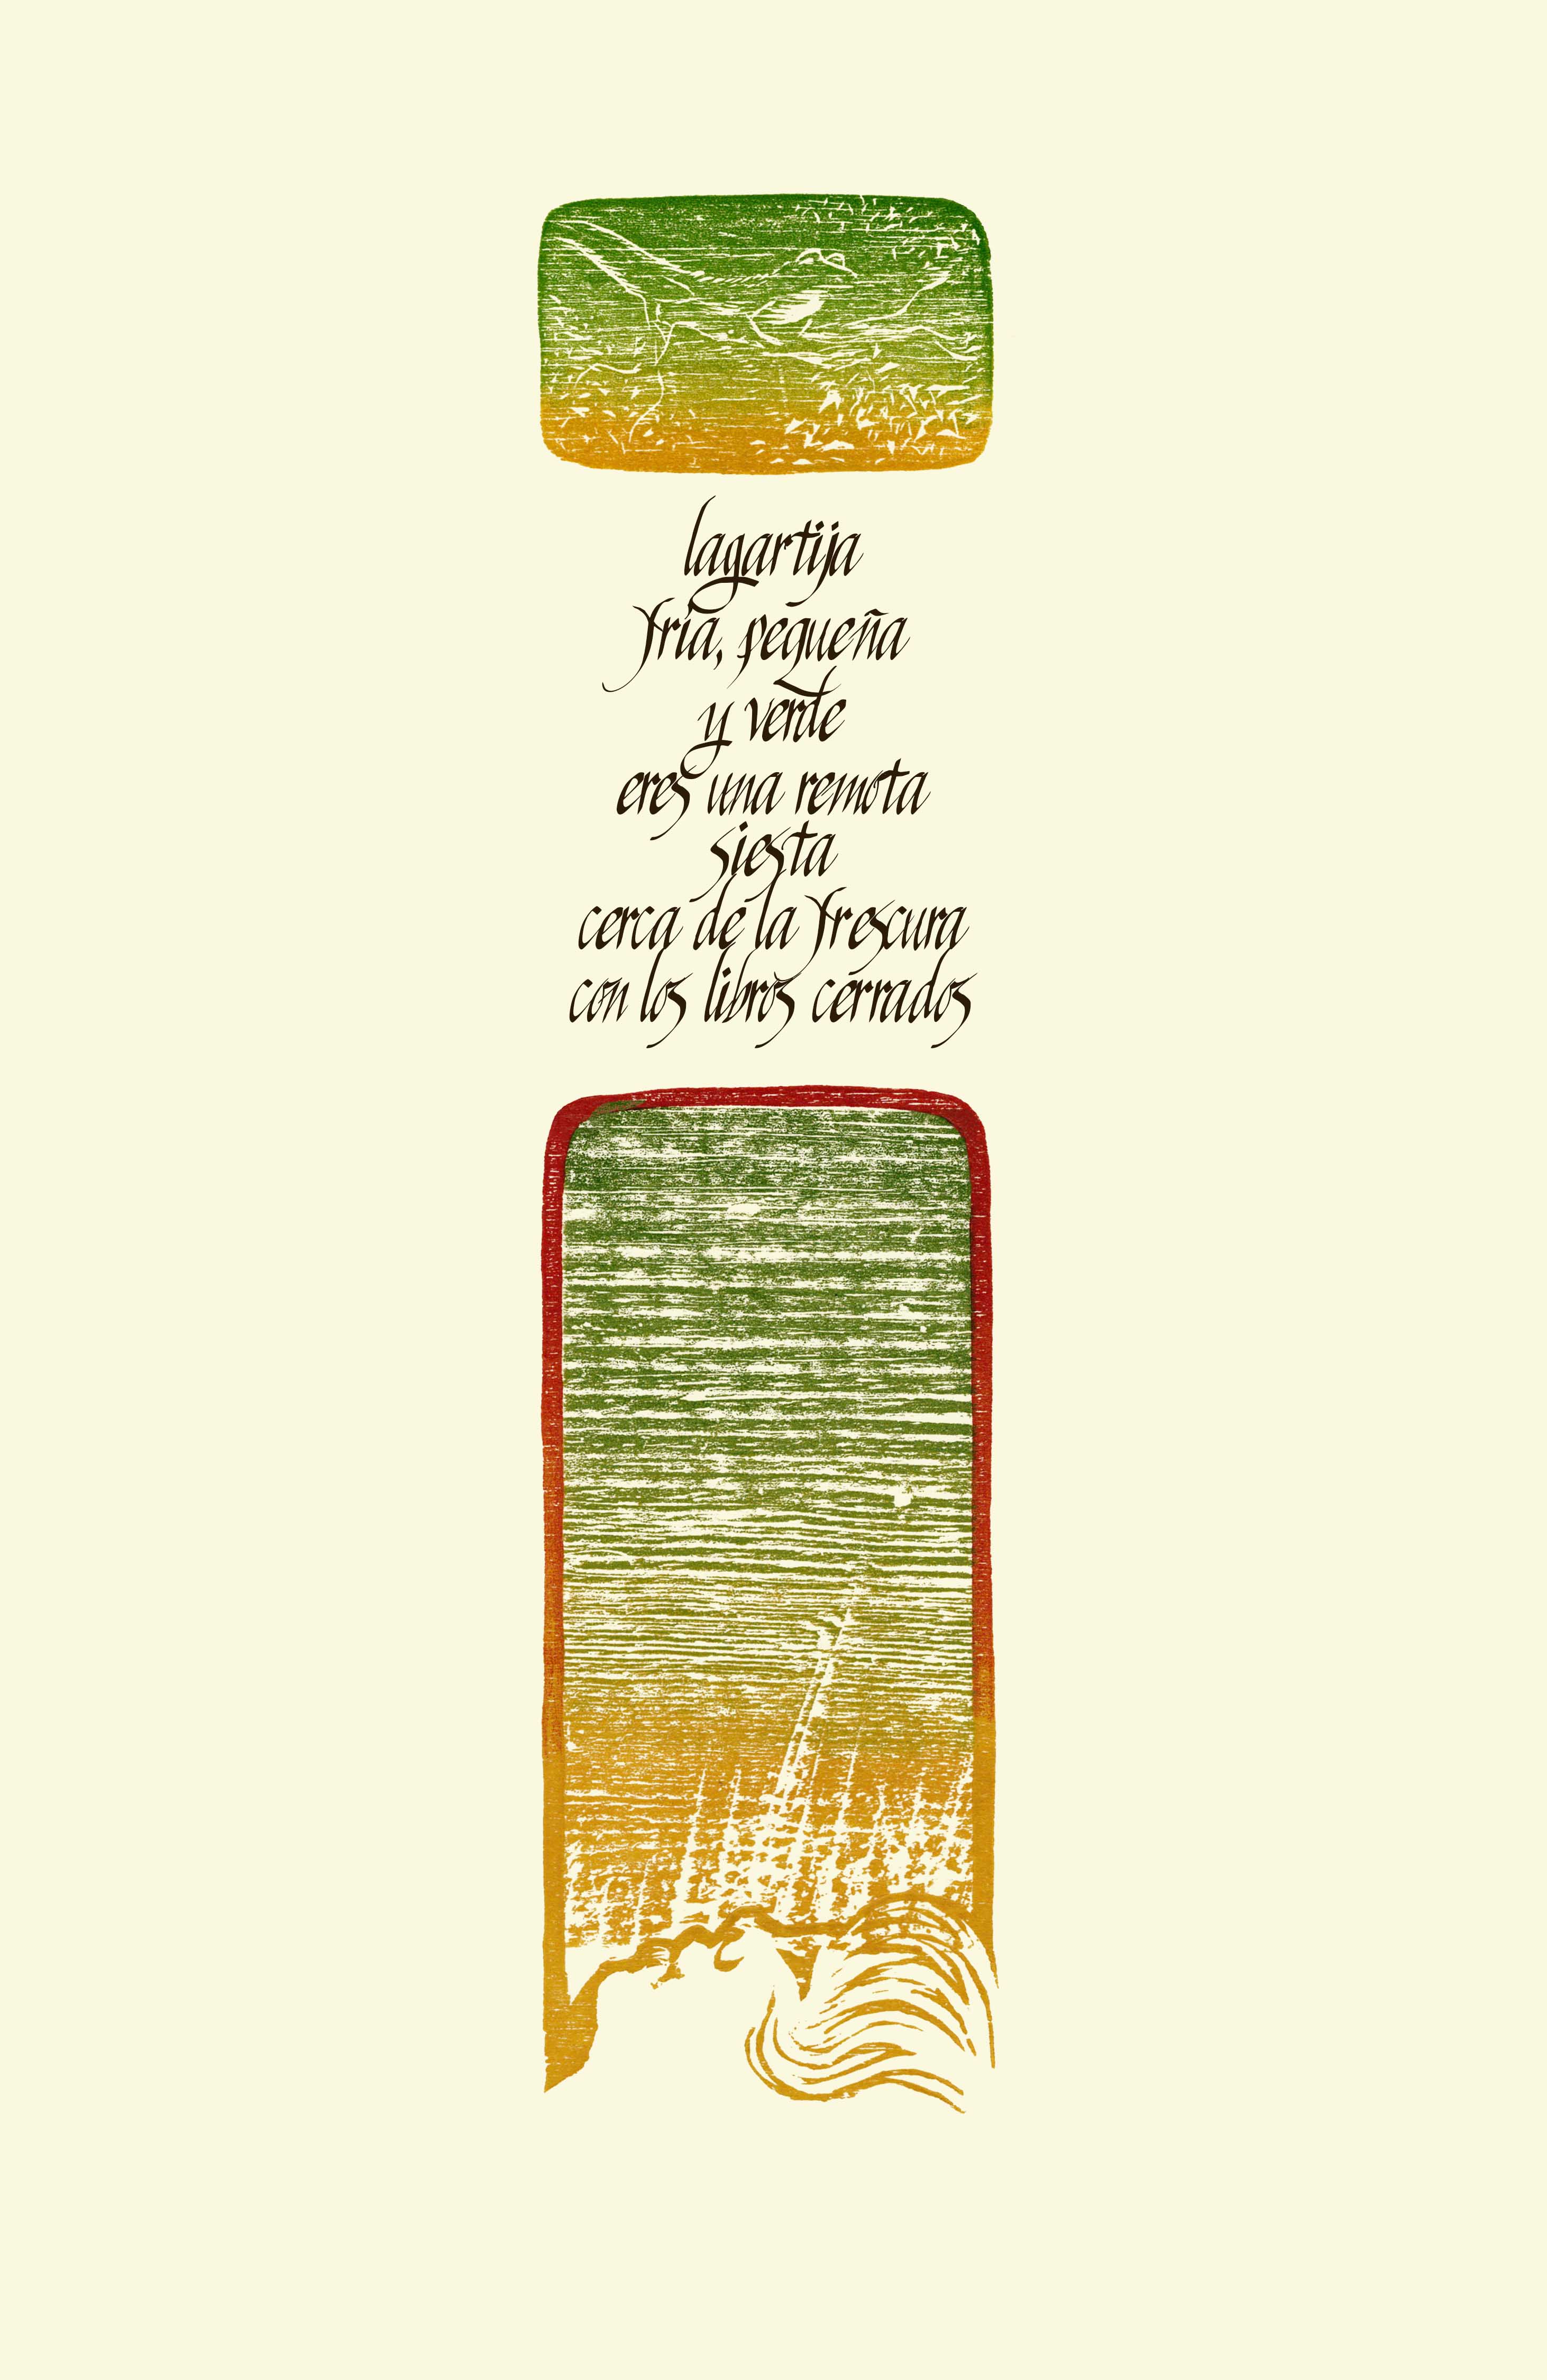 lagartija
fría, pequeña
y verde
eres una remota
siesta
cerca de la frescura
con los libros cerrados